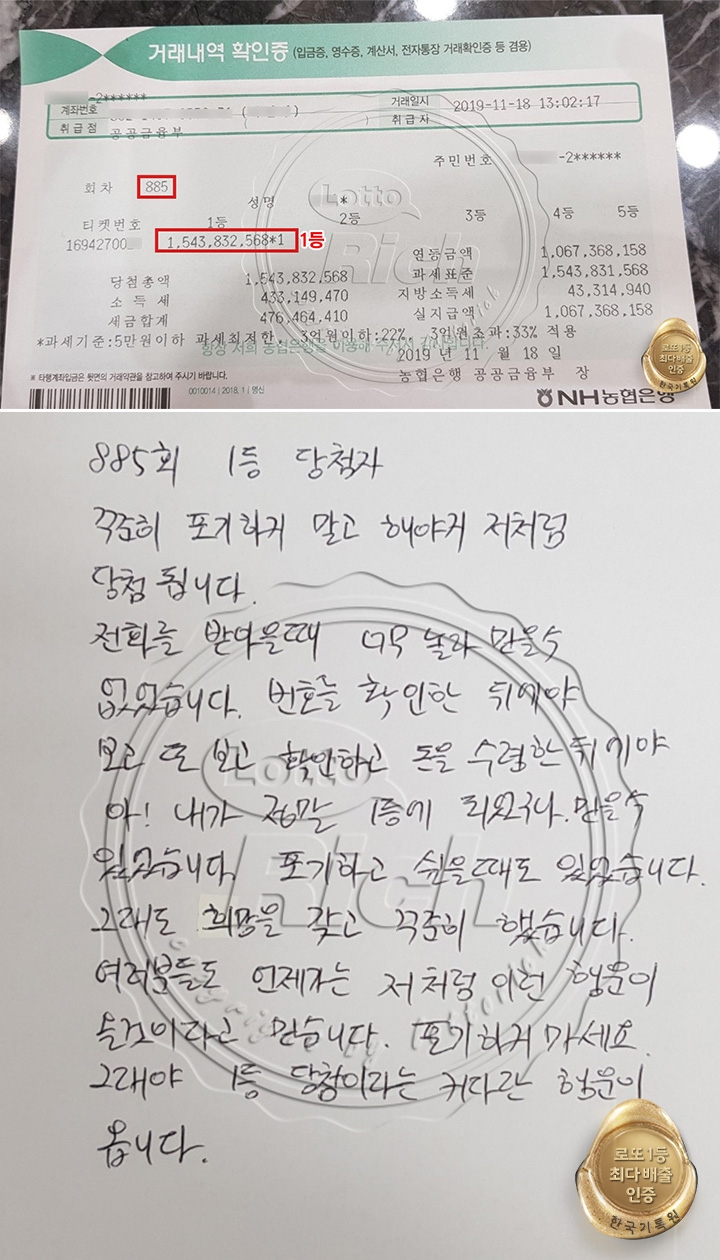 거래내역 확인증 (입금증, 영수증, 계산서, 전자통장 거래확인증 등 겸용)
-2******
계좌번호
거래일시 2019-11-18 13:02:17
취급점 공공금융부
취급자
주민번호 -2******
회차 885
성명 *
티켓번호 1등 2등 3등 4등 5등
16942700 1,543,832,568*1 1등
연등금액 1,067,368,158
당첨총액 1,543,832,568
과세표준 1,543,831,568
소득세 433,149,470
지방소득세 43,314,940
세금합계 476,464,410
실지급액 1,067,368,158
*과세기준:5만원이하 과세최저한, 3억원이하:22%, 3억원초과:33% 적용
항상 저희 농협은행을 이용해 주셔서 감사합니다.
2019 년 11 월 18 일
농협은행 공공금융부 장
※ 타행계좌입금은 뒷면의 거래약관을 참고하여 주시기 바랍니다.
0010014 | 2018. 1 | 명신
NH농협은행
Lotto
Rich
로또1등
최다배출
인증
한국기록원
885회 1등 당첨자
꾸준히 포기하지 말고 해야지 저처럼
당첨 됩니다.
전화를 받아을때 너무 놀라 믿을수
없었습니다. 번호를 확인한 뒤에야
보고 또 보고 확인하고 돈을 수령한 뒤에야
아! 내가 정말 1등에 되었구나. 믿을수
있었습니다. 포기하고 싶을때도 있었습니다.
그래도 희망을 갖고 꾸준히 했습니다.
여러분들도 언제가는 저처럼 이런 행운이
올것이라고 믿습니다. 포기하지마세요.
그래야 1등 당첨이라는 커다란 행운이
옵니다.
Lotto
Rich
로또1등
최다배출
인증
한국기록원